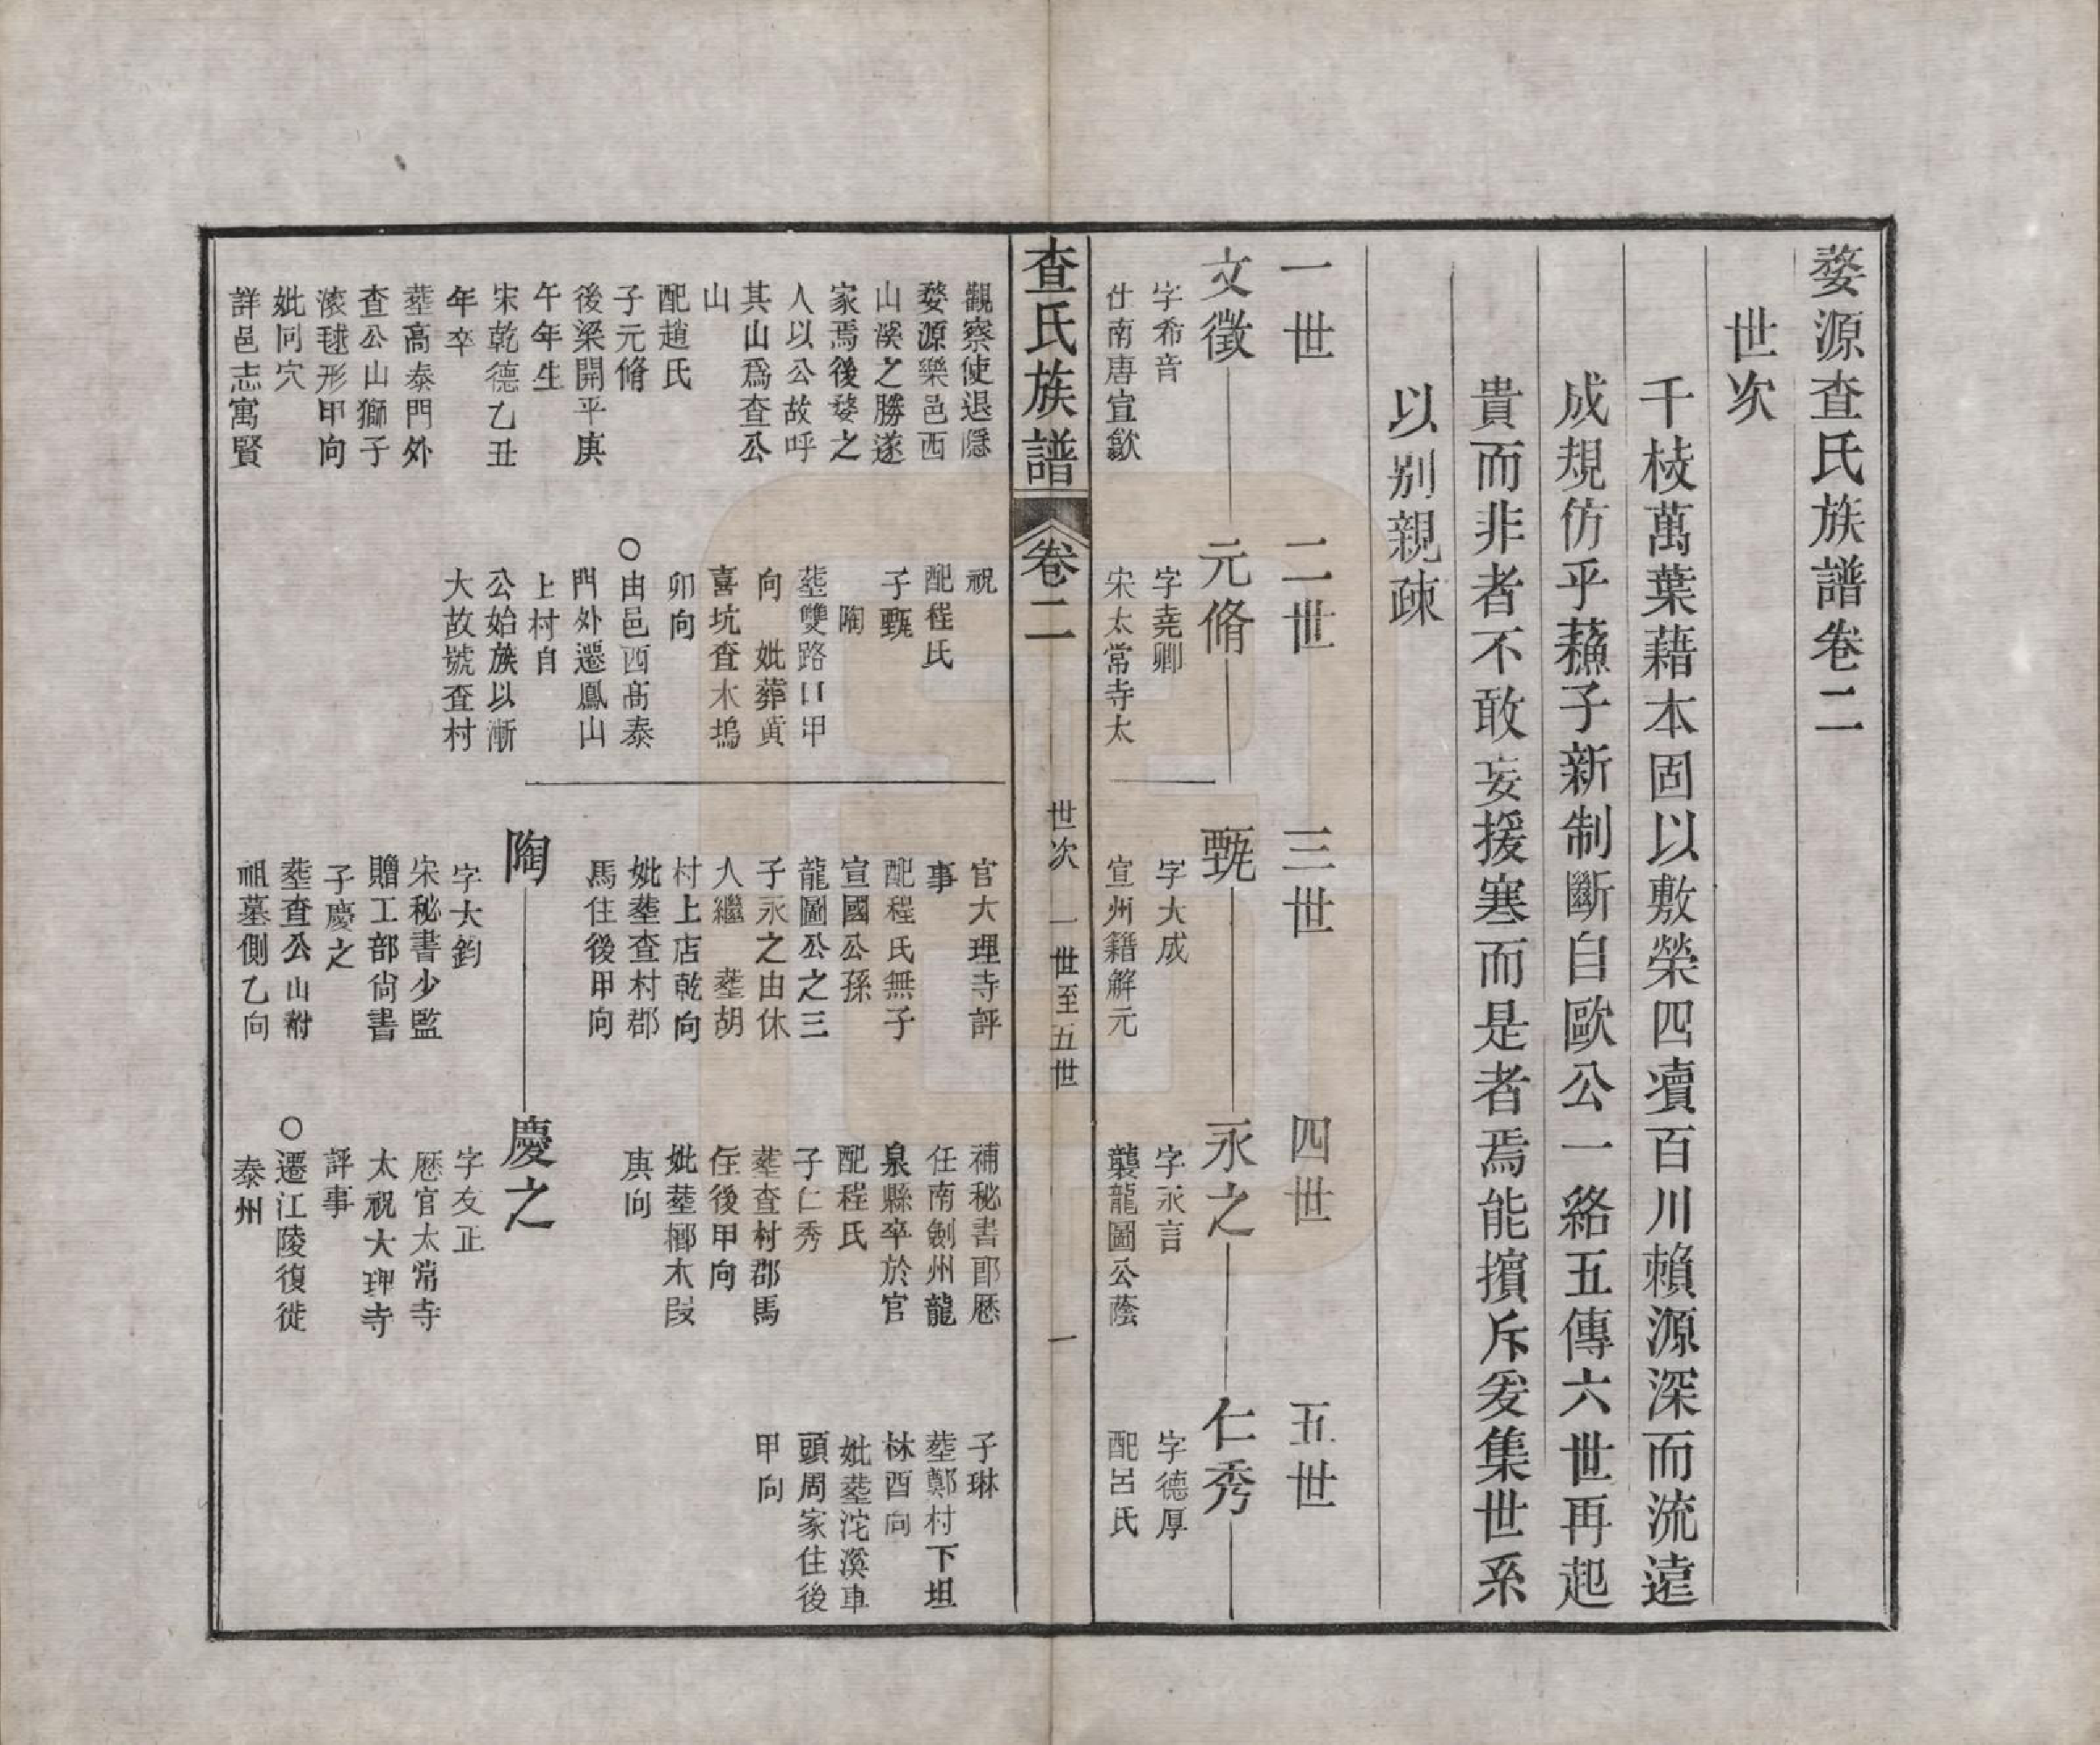 婺源查氏族譜卷二
世次
千枝萬葉藉本固以敷榮四瀆百川賴源深而流遠
成規仿乎蘓子新制斷自歐公一絡五傳六世再起
貴而非者不敢妄援寒而是者焉能擯斥爰集世系
以别親疎
一世
二世
三世
四世
五世
文徵
字希音
仕南唐宣歙
元脩
字堯卿
宋太常寺太
甄
字大成
宣州籍解元
永之
字永言
襲龍圖公蔭
仁秀
字德厚
配呂氏
查氏族譜
卷二
世次
一世至五世
一
觀察使退隱
婺源樂邑西
山溪之勝遂
家焉後婺之
人以公故呼
其山爲查公
山
配趙氏
子元脩
後梁開平庚
午年生
宋乾德乙丑
年卒
塟高泰門外
查公山獅子
滚毬形甲向
妣同穴
詳邑志寓賢
祝
配程氏
子甄
陶
塟雙路口甲
向 妣葬黄
喜坑查木塢
卯向
○由邑西髙泰
門外遷鳳山
上村自
公始族以漸
大故號查村
官大理寺評
事
配程氏無子
宣國公孫
龍圖公之三
子永之由休
人繼 塟胡
村上店乾向
妣塟查村郡
馬住後甲向
補秘書郎歷
任南劍州龍
泉縣卒於官
配程氏
子仁秀
塟查村郡馬
住後甲向
妣塟櫛木段
庚向
子琳
塟鄭村下坦
林酉向
妣塟沱溪車
頭周家住後
甲向
陶
字大鈞
宋秘書少監
贈工部尙書
子慶之
塟查公山祔
祖墓側乙向
慶之
字友正
歷官太常寺
太祝大理寺
評事
○遷江陵復徙
泰州